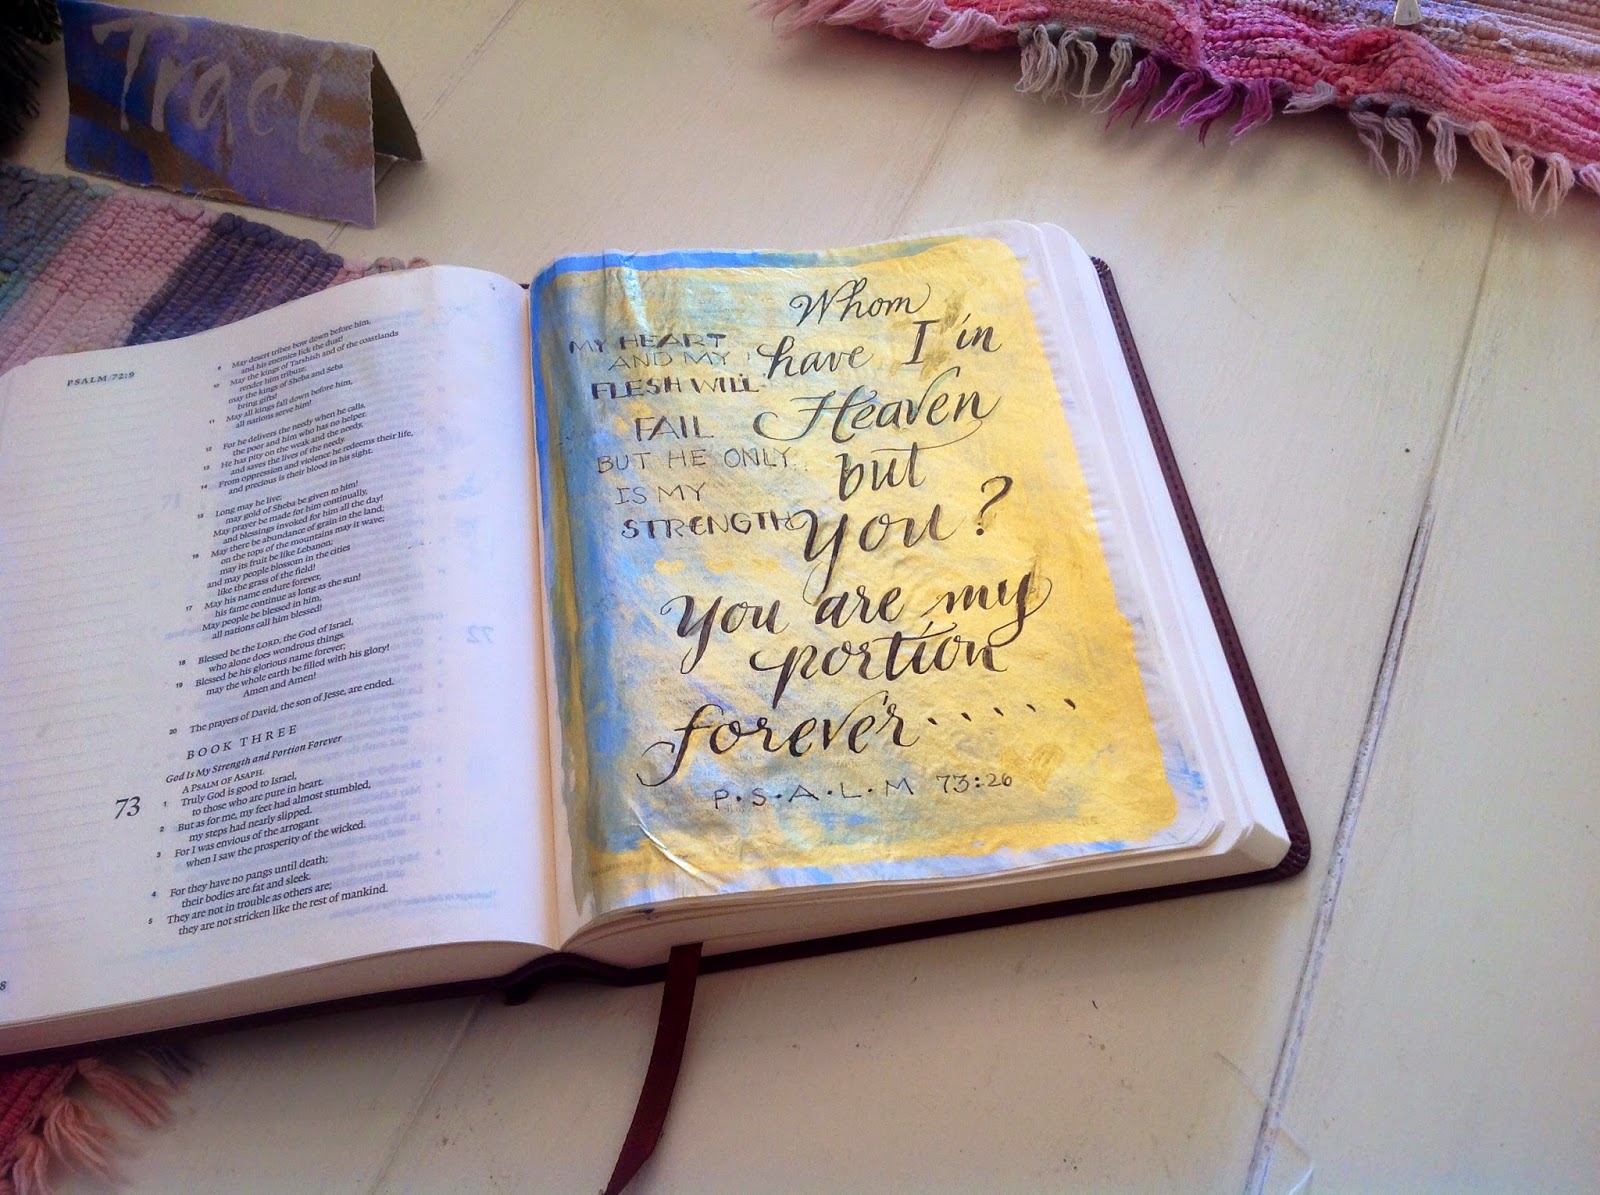 Traci
PSALM 72:9
9 May desert tribes bow down before him,
and his enemies lick the dust!
10 May the kings of Tarshish and of the coastlands
render him tribute;
may the kings of Sheba and Seba
bring gifts!
11 May all kings fall down before him,
all nations serve him!
12 For he delivers the needy when he calls,
the poor and him who has no helper.
13 He has pity on the weak and the needy,
and saves the lives of the needy.
14 From oppression and violence he redeems their life,
and precious is their blood in his sight.
15 Long may he live;
may gold of Sheba be given to him!
May prayer be made for him continually,
and blessings invoked for him all the day!
16 May there be abundance of grain in the land;
on the tops of the mountains may it wave;
may its fruit be like Lebanon;
and may people blossom in the cities
like the grass of the field!
17 May his name endure forever,
his fame continue as long as the sun!
May people be blessed in him,
all nations call him blessed!
18 Blessed be the LORD, the God of Israel,
who alone does wondrous things.
19 Blessed be his glorious name forever;
may the whole earth be filled with his glory!
Amen and Amen!
20 The prayers of David, the son of Jesse, are ended.
BOOK THREE
God Is My Strength and Portion Forever
A PSALM OF ASAPH.
73 1 Truly God is good to Israel,
to those who are pure in heart.
2 But as for me, my feet had almost stumbled,
my steps had nearly slipped.
3 For I was envious of the arrogant
when I saw the prosperity of the wicked.
4 For they have no pangs until death;
their bodies are fat and sleek.
5 They are not in trouble as others are;
they are not stricken like the rest of mankind.
MY HEART
AND MY
FLESH WILL
FAIL
BUT HE ONLY
IS MY
STRENGTH
Whom
have I in
Heaven
but
You?
You are my
portion
forever.....
P.S.A.L.M 73:26